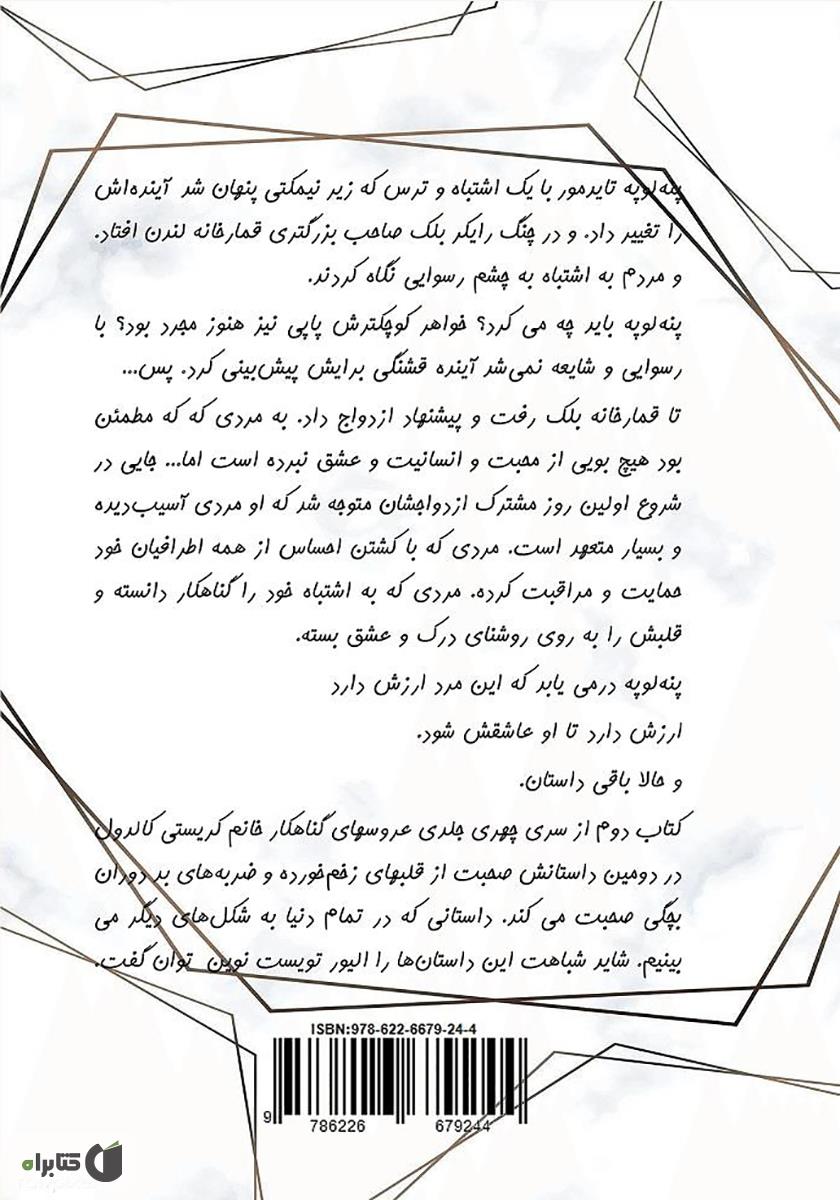 پنه‌لوپه تایدمور با یک اشتباه و ترس که زیر نیمکتی پنهان شد آینده‌اش
را تغییر داد. و در چنگ رایکر بلک صاحب بزرگتری قمارخانه لندن افتاد.
و مردم به اشتباه به چشم رسوایی نگاه کردند.
پنه‌لوپه باید چه می کرد؟ خواهر کوچکترش پاپی نیز هنوز مجرد بود؟ با
رسوایی و شایعه نمی‌شد آینده قشنگی برایش پیش‌بینی کرد. پس...
تا قمارخانه بلک رفت و پیشنهاد ازدواج داد. به مردی که که مطمئن
بود هیچ بویی از محبت و انسانیت و عشق نبرده است اما... جایی در
شروع اولین روز مشترک ازدواجشان متوجه شد که او مردی آسیب‌دیده
و بسیار متعهد است. مردی که با کشتن احساس از همه اطرافیان خود
حمایت و مراقبت کرده. مردی که به اشتباه خود را گناهکار دانسته و
قلبش را به روی روشنای درک و عشق بسته.
پنه‌لوپه درمی یابد که این مرد ارزش دارد
ارزش دارد تا او عاشقش شود.
و حالا باقی داستان.
کتاب دوم از سری چهری جلدی عروسهای گناهکار خانم کریستی کالدول
در دومین داستانش صحبت از قلبهای زخم‌خورده و ضربه‌های بد دوران
بچگی صحبت می کند. داستانی که در تمام دنیا به شکل‌های دیگر می
بینیم. شاید شباهت این داستان‌ها را الیور تویست نوین توان گفت.
ISBN:978-622-6679-24-4
9 786226 679244
کتابراه